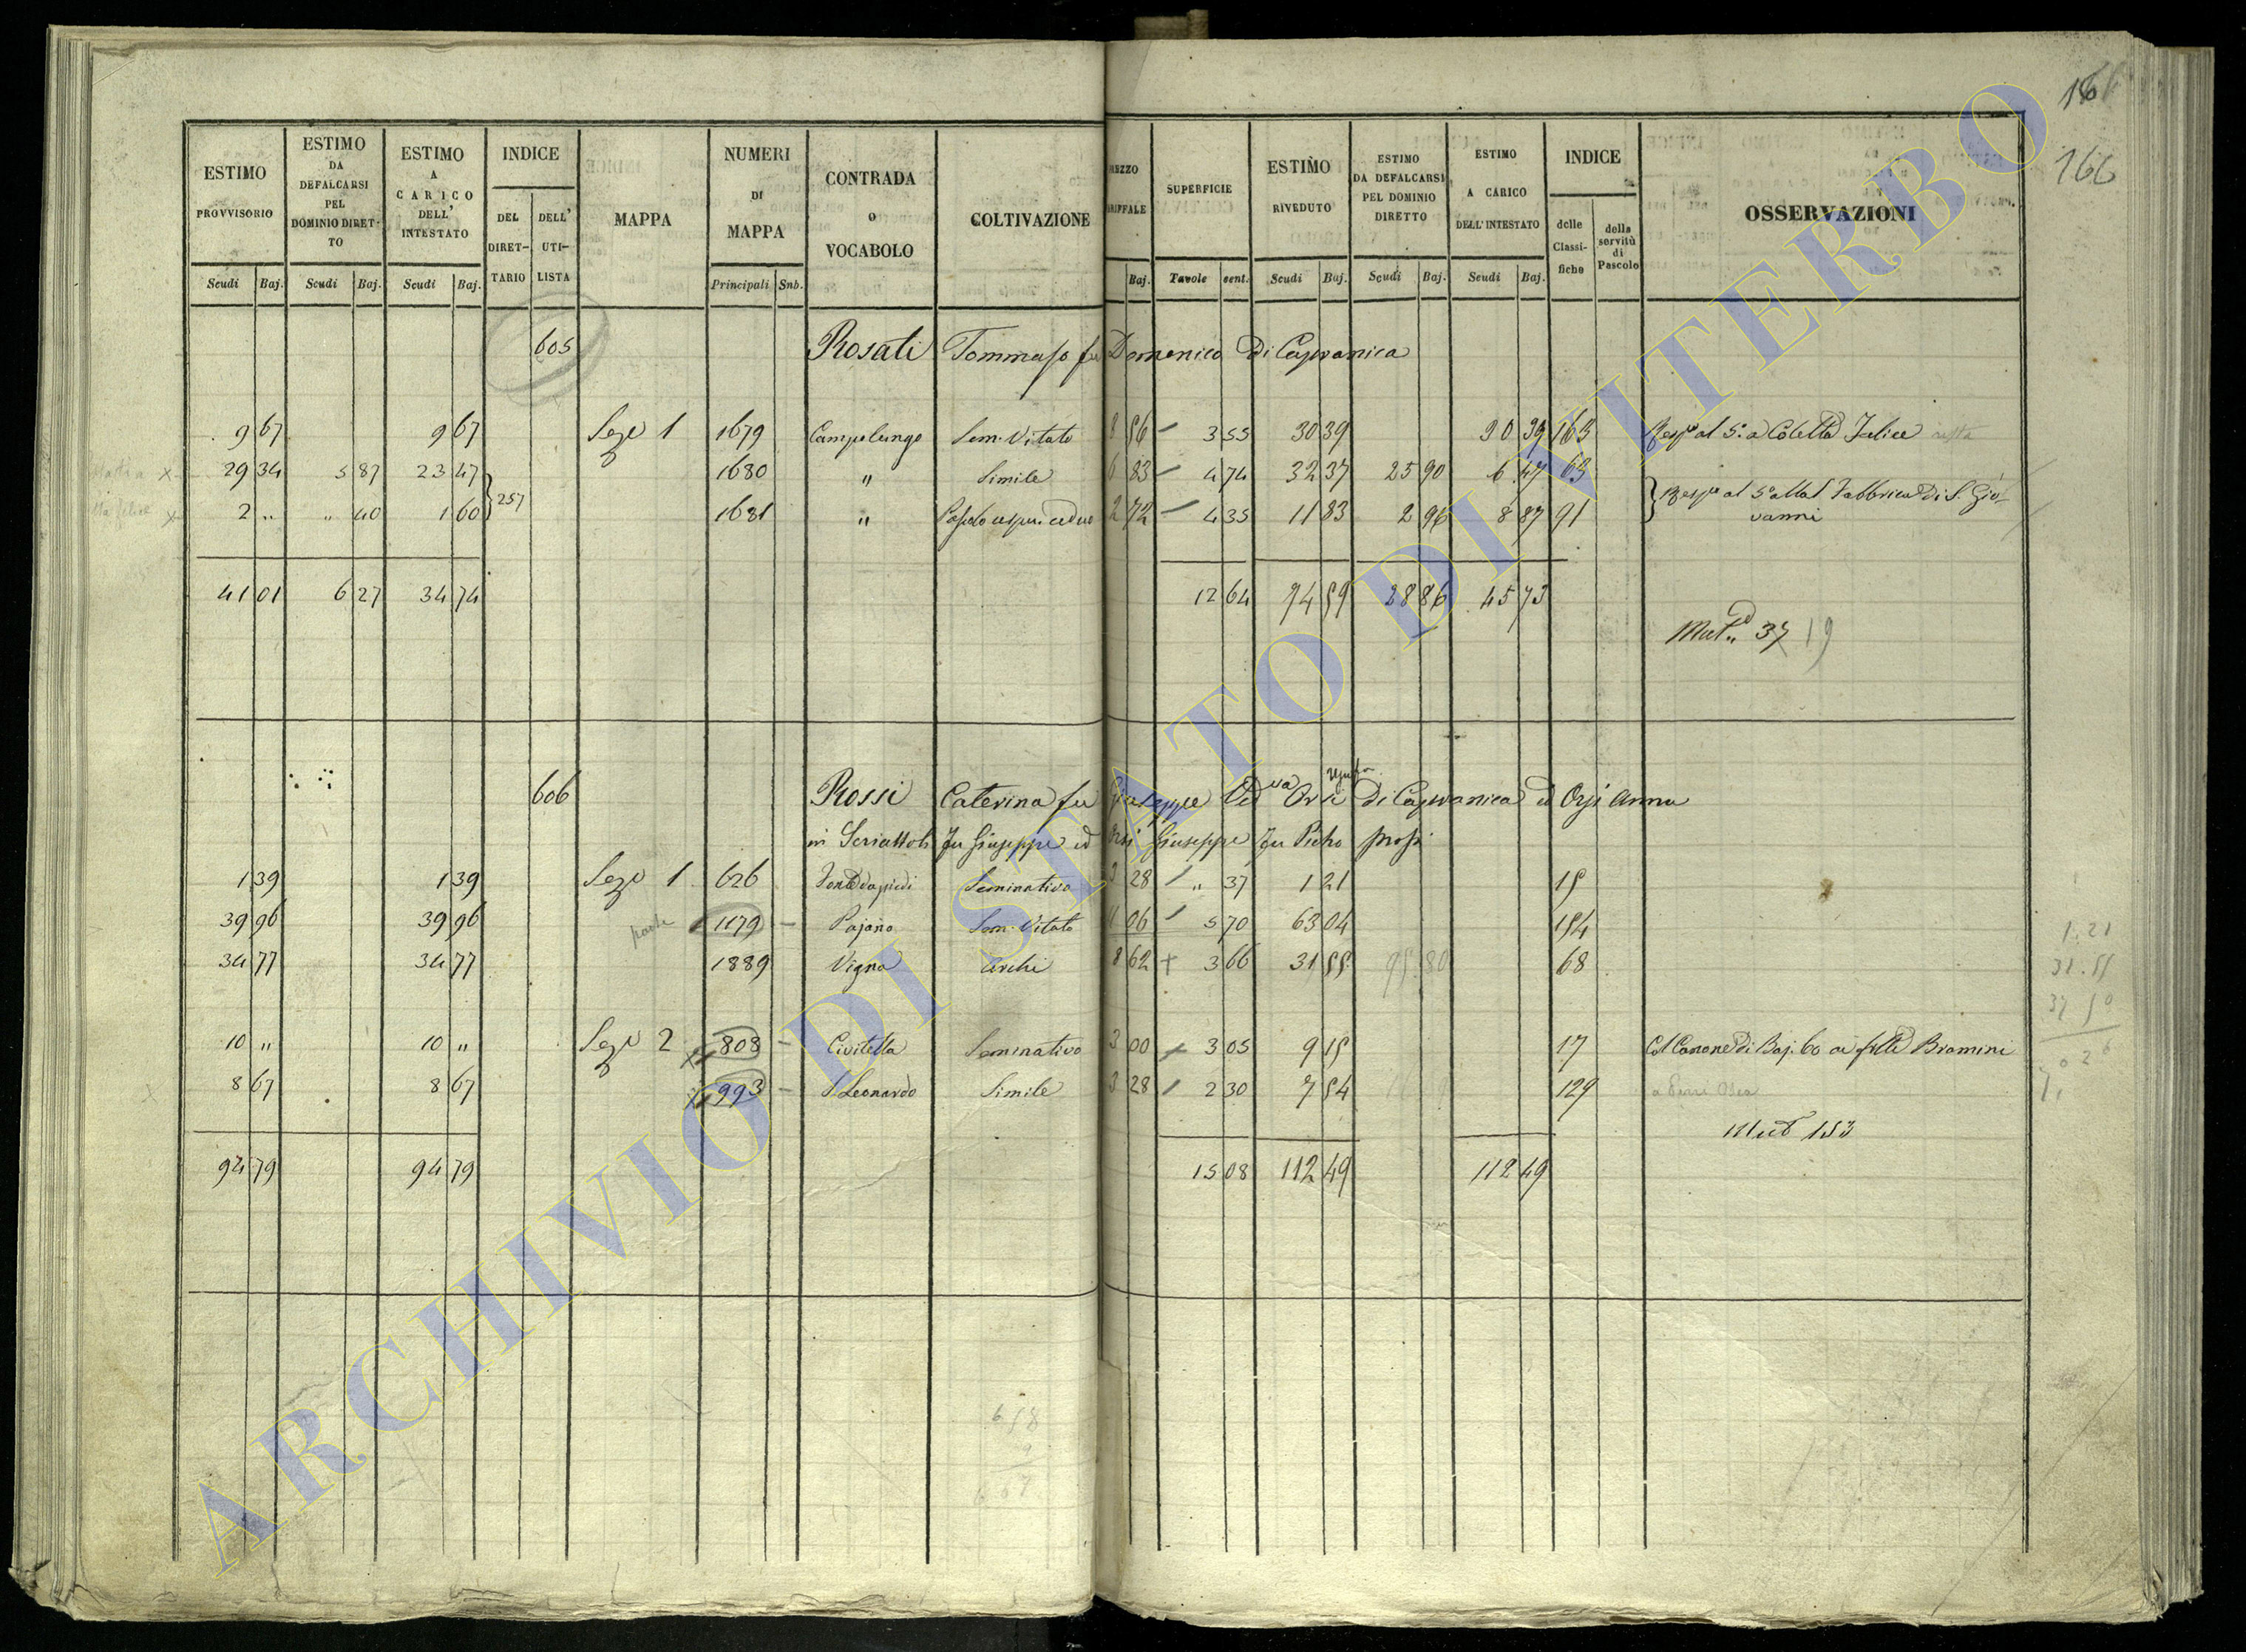 166
166
ESTIMO PROVVISORIO
ESTIMO DA DEFALCARSI PEL DOMINIO DIRET-TO
ESTIMO A CARICO DELL' INTESTATO
INDICE
DEL DIRET-TARIO
DELL' UTI-LISTA
MAPPA
NUMERI DI MAPPA
CONTRADA o VOCABOLO
COLTIVAZIONE
SUPERFICIE
ESTIMO RIVEDUTO
ESTIMO DA DEFALCARSI PEL DOMINIO DIRETTO
ESTIMO A CARICO DELL' INTESTATO
INDICE
delle Classi-fiche
della servitù di Pascolo
OSSERVAZIONI
Scudi Baj. Scudi Baj. Scudi Baj. Principali Snb. Baj. Tavole cent. Scudi Baj. Scudi Baj. Scudi Baj.
605 Rosati Tommaso fu Domenico Di Capranica
9 67 9 67 Sezе 1 1679 Campolungo Sem. Vitato 8 56 3 55 30 39 30 39 163 Coletta Felice
29 34 5 87 23 47 1680 " Simile 6 83 4 74 32 37 25 90 6 47 63
257
2 " " 40 1 60 1681 " 2 72 4 35 11 83 2 96 8 87 91 Fabbrica Di S. Gio-
vanni
41 01 6 27 34 74 12 64 74 59 28 86 45 73
Mut. 37 19
606 Rossi Caterina fu Giuseppe Ved.va Orsi Di Capranica ed Orsi Anna
in fu Giuseppe ed Orsi Giuseppe fu Pietro
1 39 1 39 Seze 1 626 Seminativo 3 28 " 37 1 21 15
39 96 39 96 parte 1179 Pajano Sem. Vitato 11 06 5 70 63 04 154
34 77 34 77 1889 Vigna 8 62 3 66 31 55 95 80 68
10 " 10 " Seze 2 808 Civitella Seminativo 3 00 3 05 9 15 17 Col Canone di Baj. 60 ai Bramini
8 67 8 67 993 S. Leonardo Simile 3 28 2 30 7 54 129
Mut 153
94 79 94 79 15 08 112 49 112 49
1.21
31.55
37 50
658
9
667
ARCHIVIO DI STATO DI VITERBO